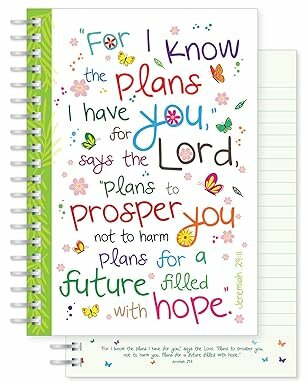 "For I know
the plans
I have
for you,"
says the
Lord,
"plans to
prosper you
not to harm
plans for a
future filled
with hope."
Jeremiah 29:11
"For I know the plans I have for you," says the Lord. "Plans to prosper you,
not to harm you. Plans for a future filled with hope."